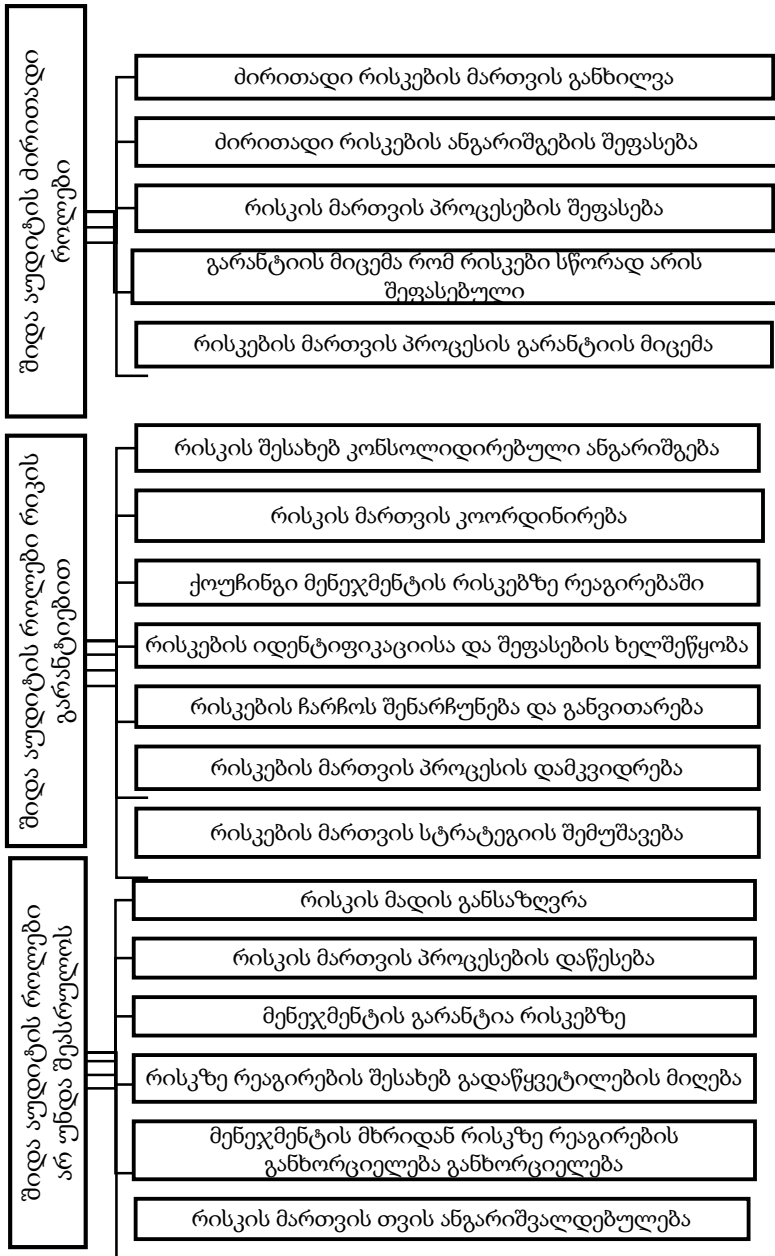 შიდა აუდიტის ძირითადი
როლები
ძირითადი რისკების მართვის განხილვა
ძირითადი რისკების ანგარიშგების შეფასება
რისკის მართვის პროცესების შეფასება
გარანტიის მიცემა რომ რისკები სწორად არის
შეფასებული
რისკების მართვის პროცესის გარანტიის მიცემა
შიდა აუდიტის როლები რიკის
გარანტიებით
რისკის შესახებ კონსოლიდირებული ანგარიშგება
რისკის მართვის კოორდინირება
ქოუჩინგი მენეჯმენტის რისკებზე რეაგირებაში
რისკების იდენტიფიკაციისა და შეფასების ხელშეწყობა
რისკების ჩარჩოს შენარჩუნება და განვითარება
რისკების მართვის პროცესის დამკვიდრება
რისკების მართვის სტრატეგიის შემუშავება
შიდა აუდიტის როლები
არ უნდა შეასრულოს
რისკის მადის განსაზღვრა
რისკის მართვის პროცესების დაწესება
მენეჯმენტის გარანტია რისკებზე
რისკზე რეაგირების შესახებ გადაწყვეტილების მიღება
მენეჯმენტის მხრიდან რისკზე რეაგირების
განხორციელება განხორციელება
რისკის მართვის თვის ანგარიშვალდებულება